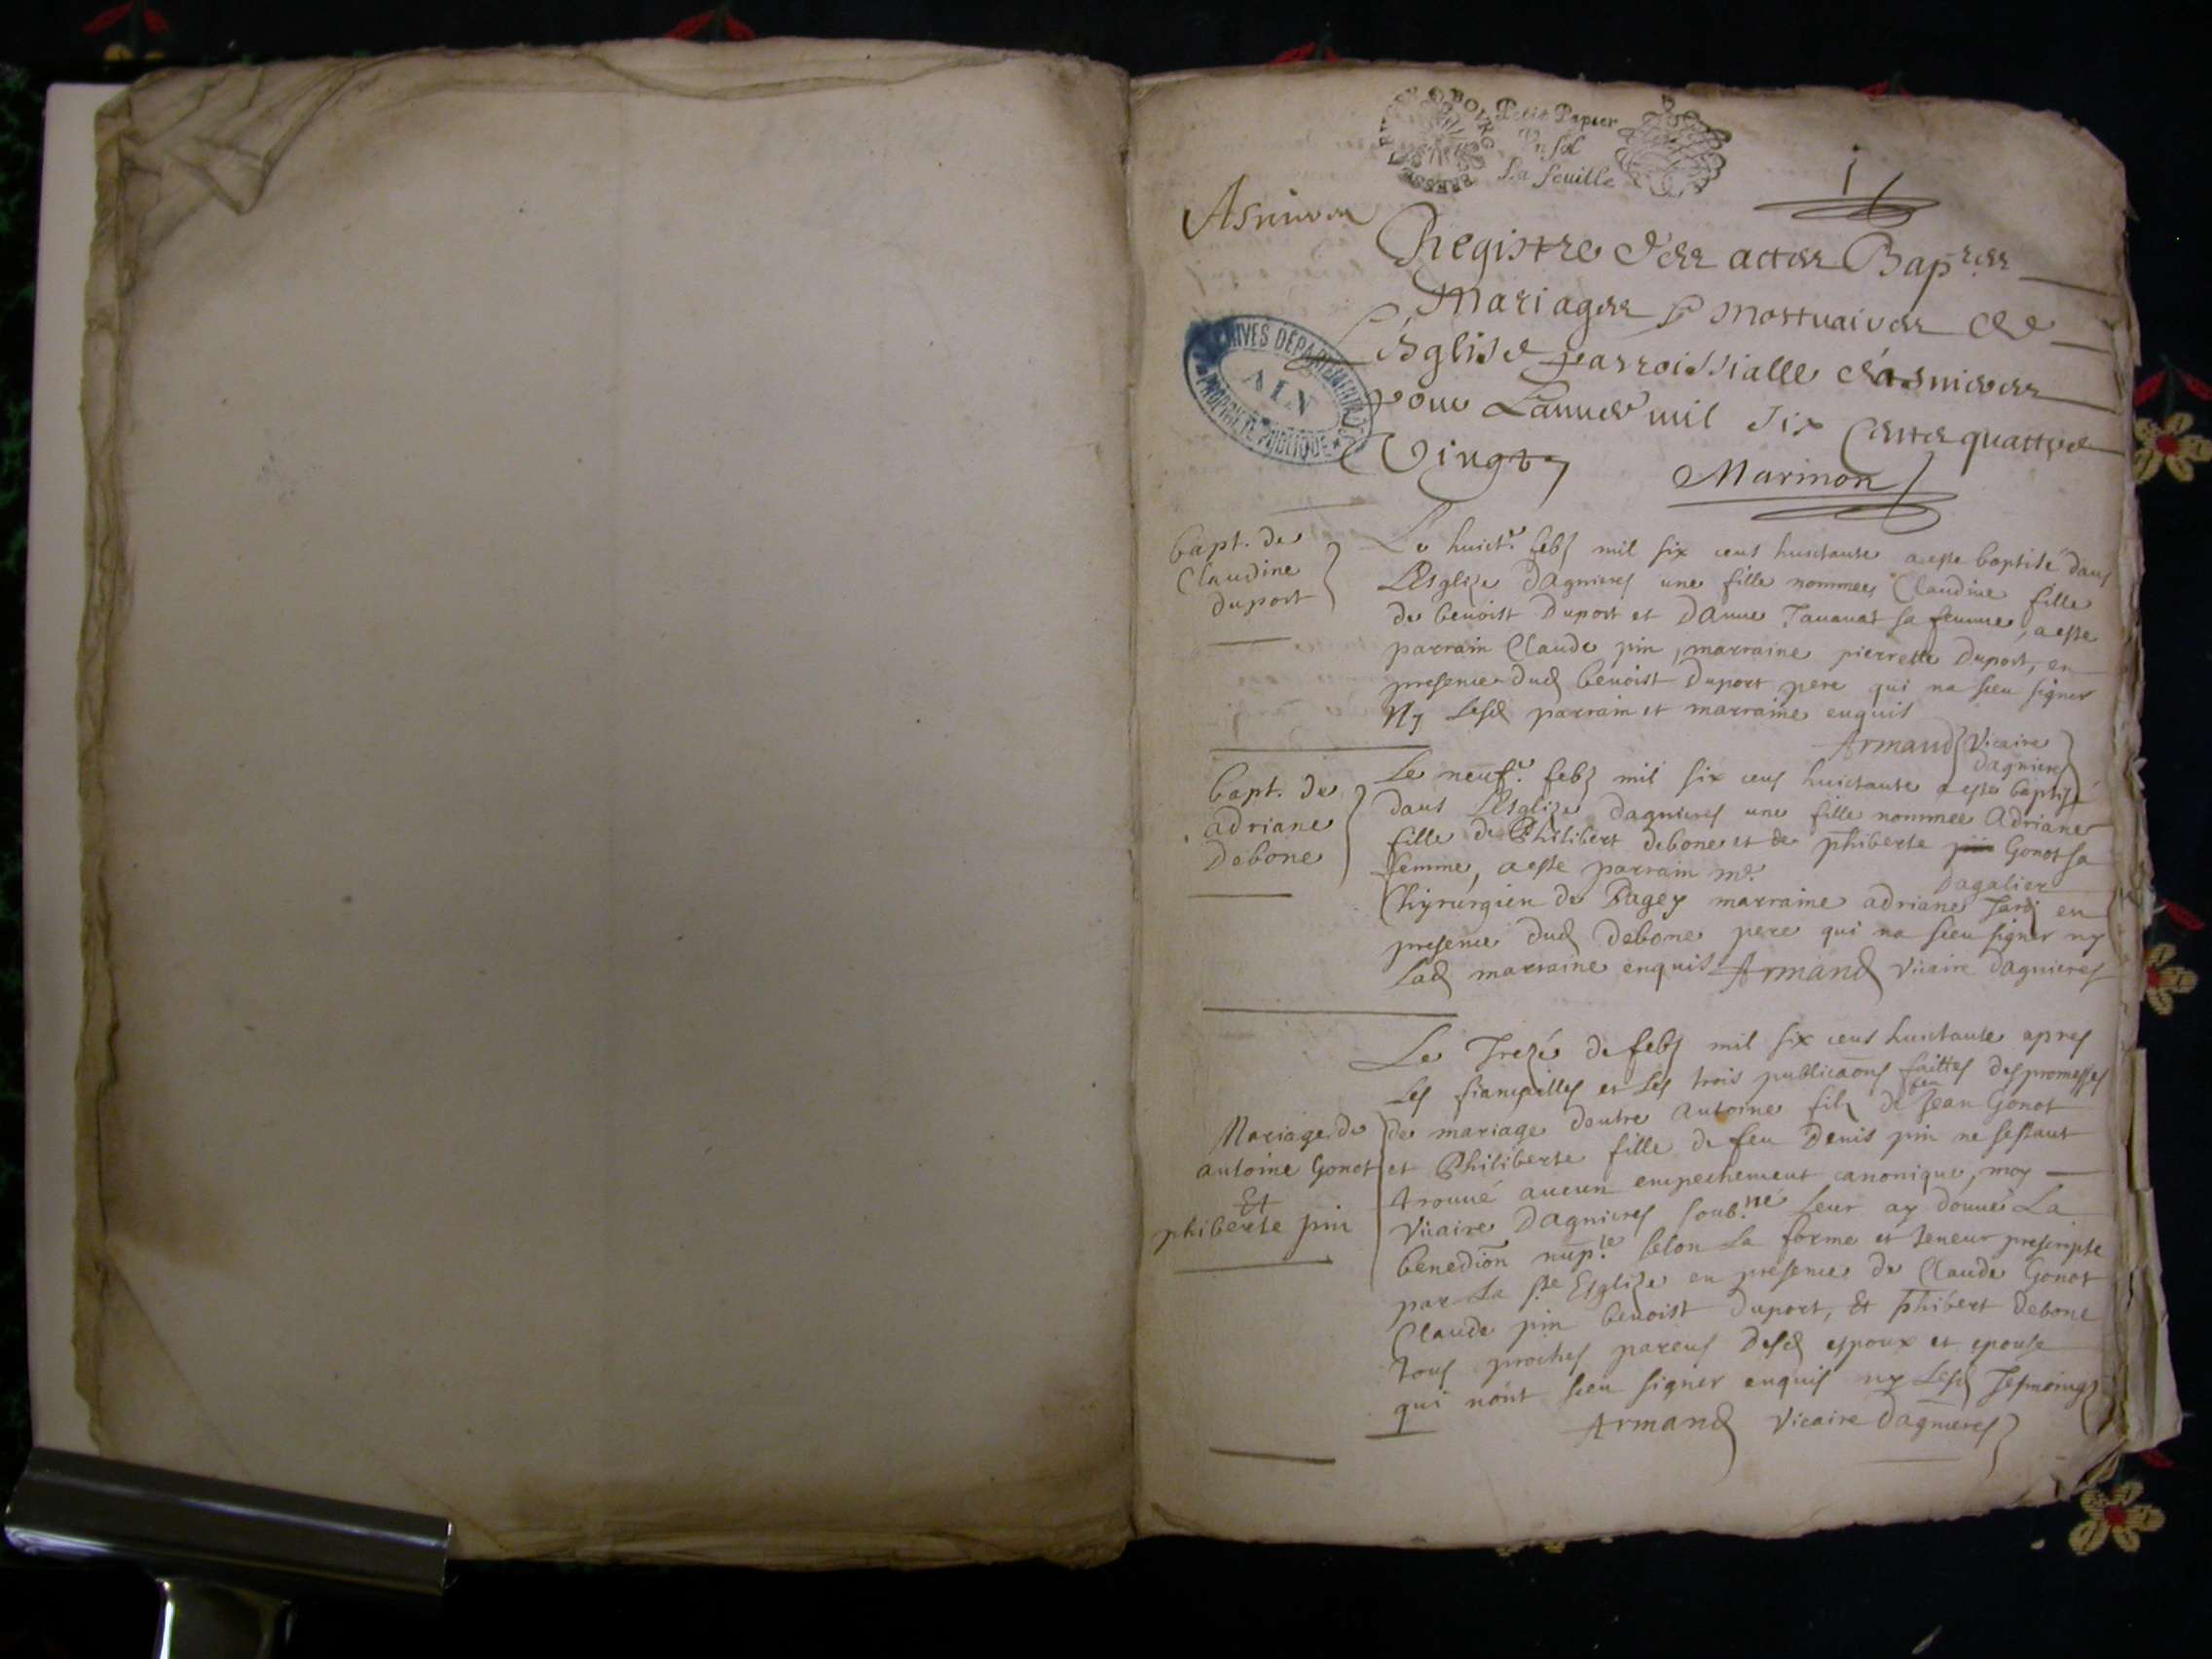 Petit Papier
Un sol
La feuille
BOURG BRESSE
1
Asnieres
Registre des actes Bap.res
Mariages & mortuaires de
l'Eglise parroissialle d'asnieres
pour L'année mil six cents quattre
Vingt
Marinon
ARCHIVES DÉPARTEMENTALES
AIN
PROPRIÉTÉ PUBLIQUE
bapt. de
Claudine
duport
Le huict.e feb mil six cens huictante a este baptisé dans
L'Esglize D'agnieres une fille nommée Claudine fille
de benoist Duport et D'anne Tavanat sa femme, a este
parrain Claude pin, marraine pierrette Duport, en
presence dud benoist Duport pere qui na sceu signer
Ny Lesd parrain et marraine enquis
Armand Vicaire
Dagnieres
bapt. de
adriane
Debone
Le neuf.e feb mil six cens huictante a este baptisé
dans L'Esglize Dagnieres une fille nommee Adriane
fille de Philibert debone et de phiberte pin Gonot sa
femme, a este parrain me. Dagalier
Chyrurgien de Bagey marraine adriane Jard en
presence dud Debone pere qui na sceu signer ny
Lad marraine enquis Armand Vicaire Dagnieres
Mariage de
antoine Gonot
Et
phiberte pin
Le Trezé de feb mil six cens huictante apres
Les fiançailles et Les trois publicaons faittes des promesses
de mariage d'entre Antoine filz de feu Jean Gonot
et Philiberte fille de feu Denis pin ne sestant
trouué aucun empechement canonique, moy
Vicaire Dagnieres soub.né Leur ay donné La
benedion nup.le selon La forme et teneur prescripte
par La ste Esglize en presence de Claude Gonot
Claude pin benoist Duport, Et phibert debone
tous proches parens Desd espoux et epouse
qui nont sceu signer enquis ny Lesd Tesmoings
Armand Vicaire Dagnieres